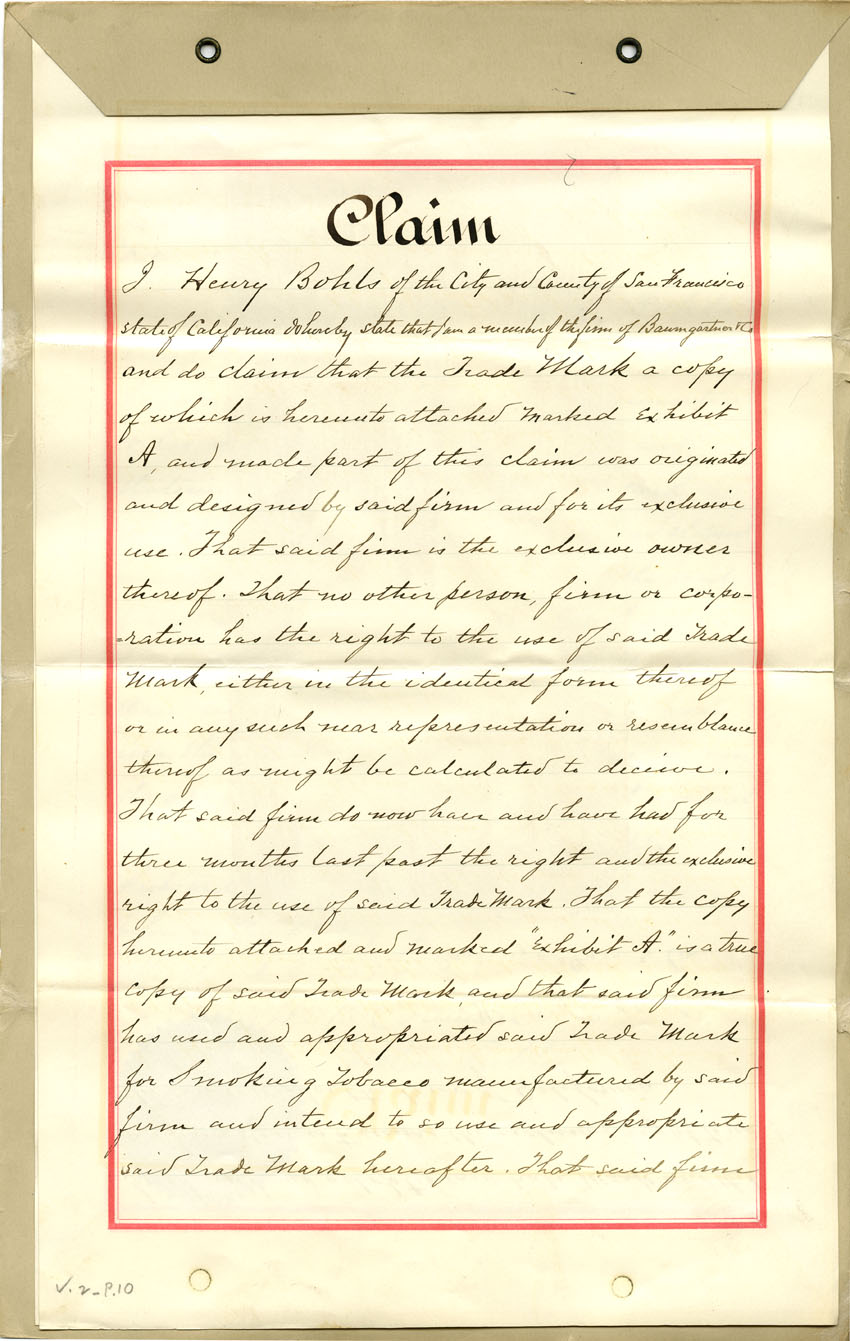 Claim
I. Henry Bohls of the City and County of San Francisco
state of California do hereby state that I am a member of the firm of Baumgartner & Co
and do claim that the Trade Mark a copy
of which is hereunto attached marked Exhibit
A, and made part of this claim was originated
and designed by said firm and for its exclusive
use. That said firm is the exclusive owner
thereof. That no other person, firm or corpo-
=ration has the right to the use of said Trade
Mark, either in the identical form thereof
or in any such near representation or resemblance
thereof as might be calculated to deceive.
That said firm do now have and have had for
three months last past the right and the exclusive
right to the use of said Trade Mark. That the copy
hereunto attached and marked "Exhibit A." is a true
copy of said Trade Mark, and that said firm
has used and appropriated said Trade Mark
for Smoking Tobacco manufactured by said
firm and intend to so use and appropriate
said Trade Mark hereafter. That said firm
V. 2 - P. 10